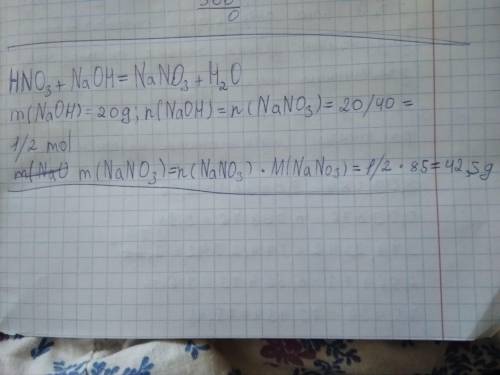 0
HNO₃ + NaOH = NaNO₃ + H₂O
m(NaOH) = 20g; n(NaOH) = n(NaNO₃) = 20/40 =
1/2 mol
m(NaNO₃) = n(NaNO₃) · M(NaNO₃) = 1/2 · 85 = 42,5g